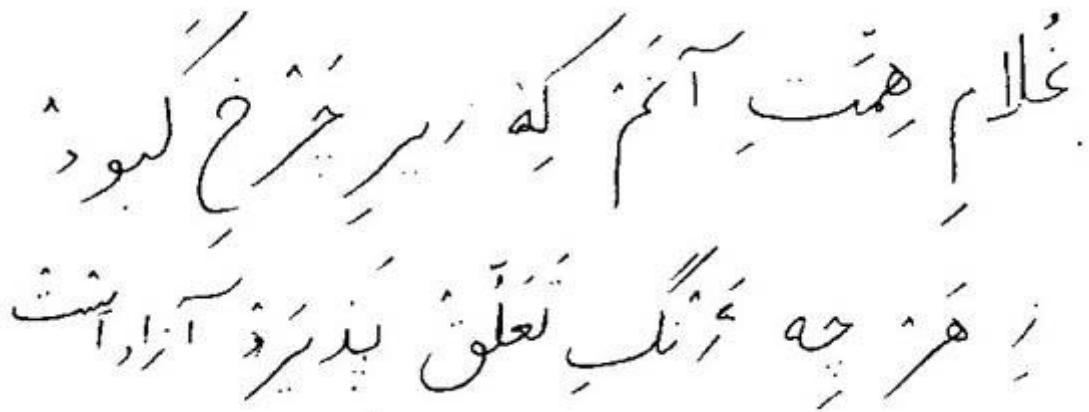 غُلامِ هِمَّتِ آنَمْ کِهْ زیرِ چَرْخِ کَبودْ
زِ هَرْ چِه رَنْگِ تَعَلُّقْ پَذیرَدْ آزاداَسْتْ